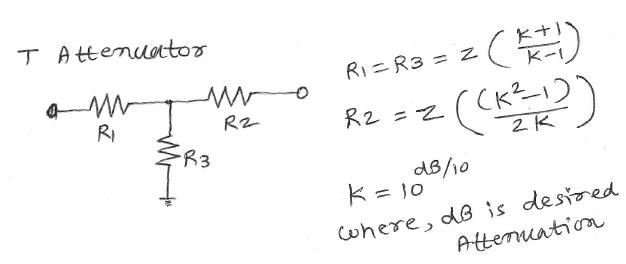 T Attenuator
R1
R2
R3
R1 = R3 = Z ( K+1 / K-1 )
R2 = Z ( (K²-1) / 2K )
K = 10^dB/10
where, dB is desired
Attenuation